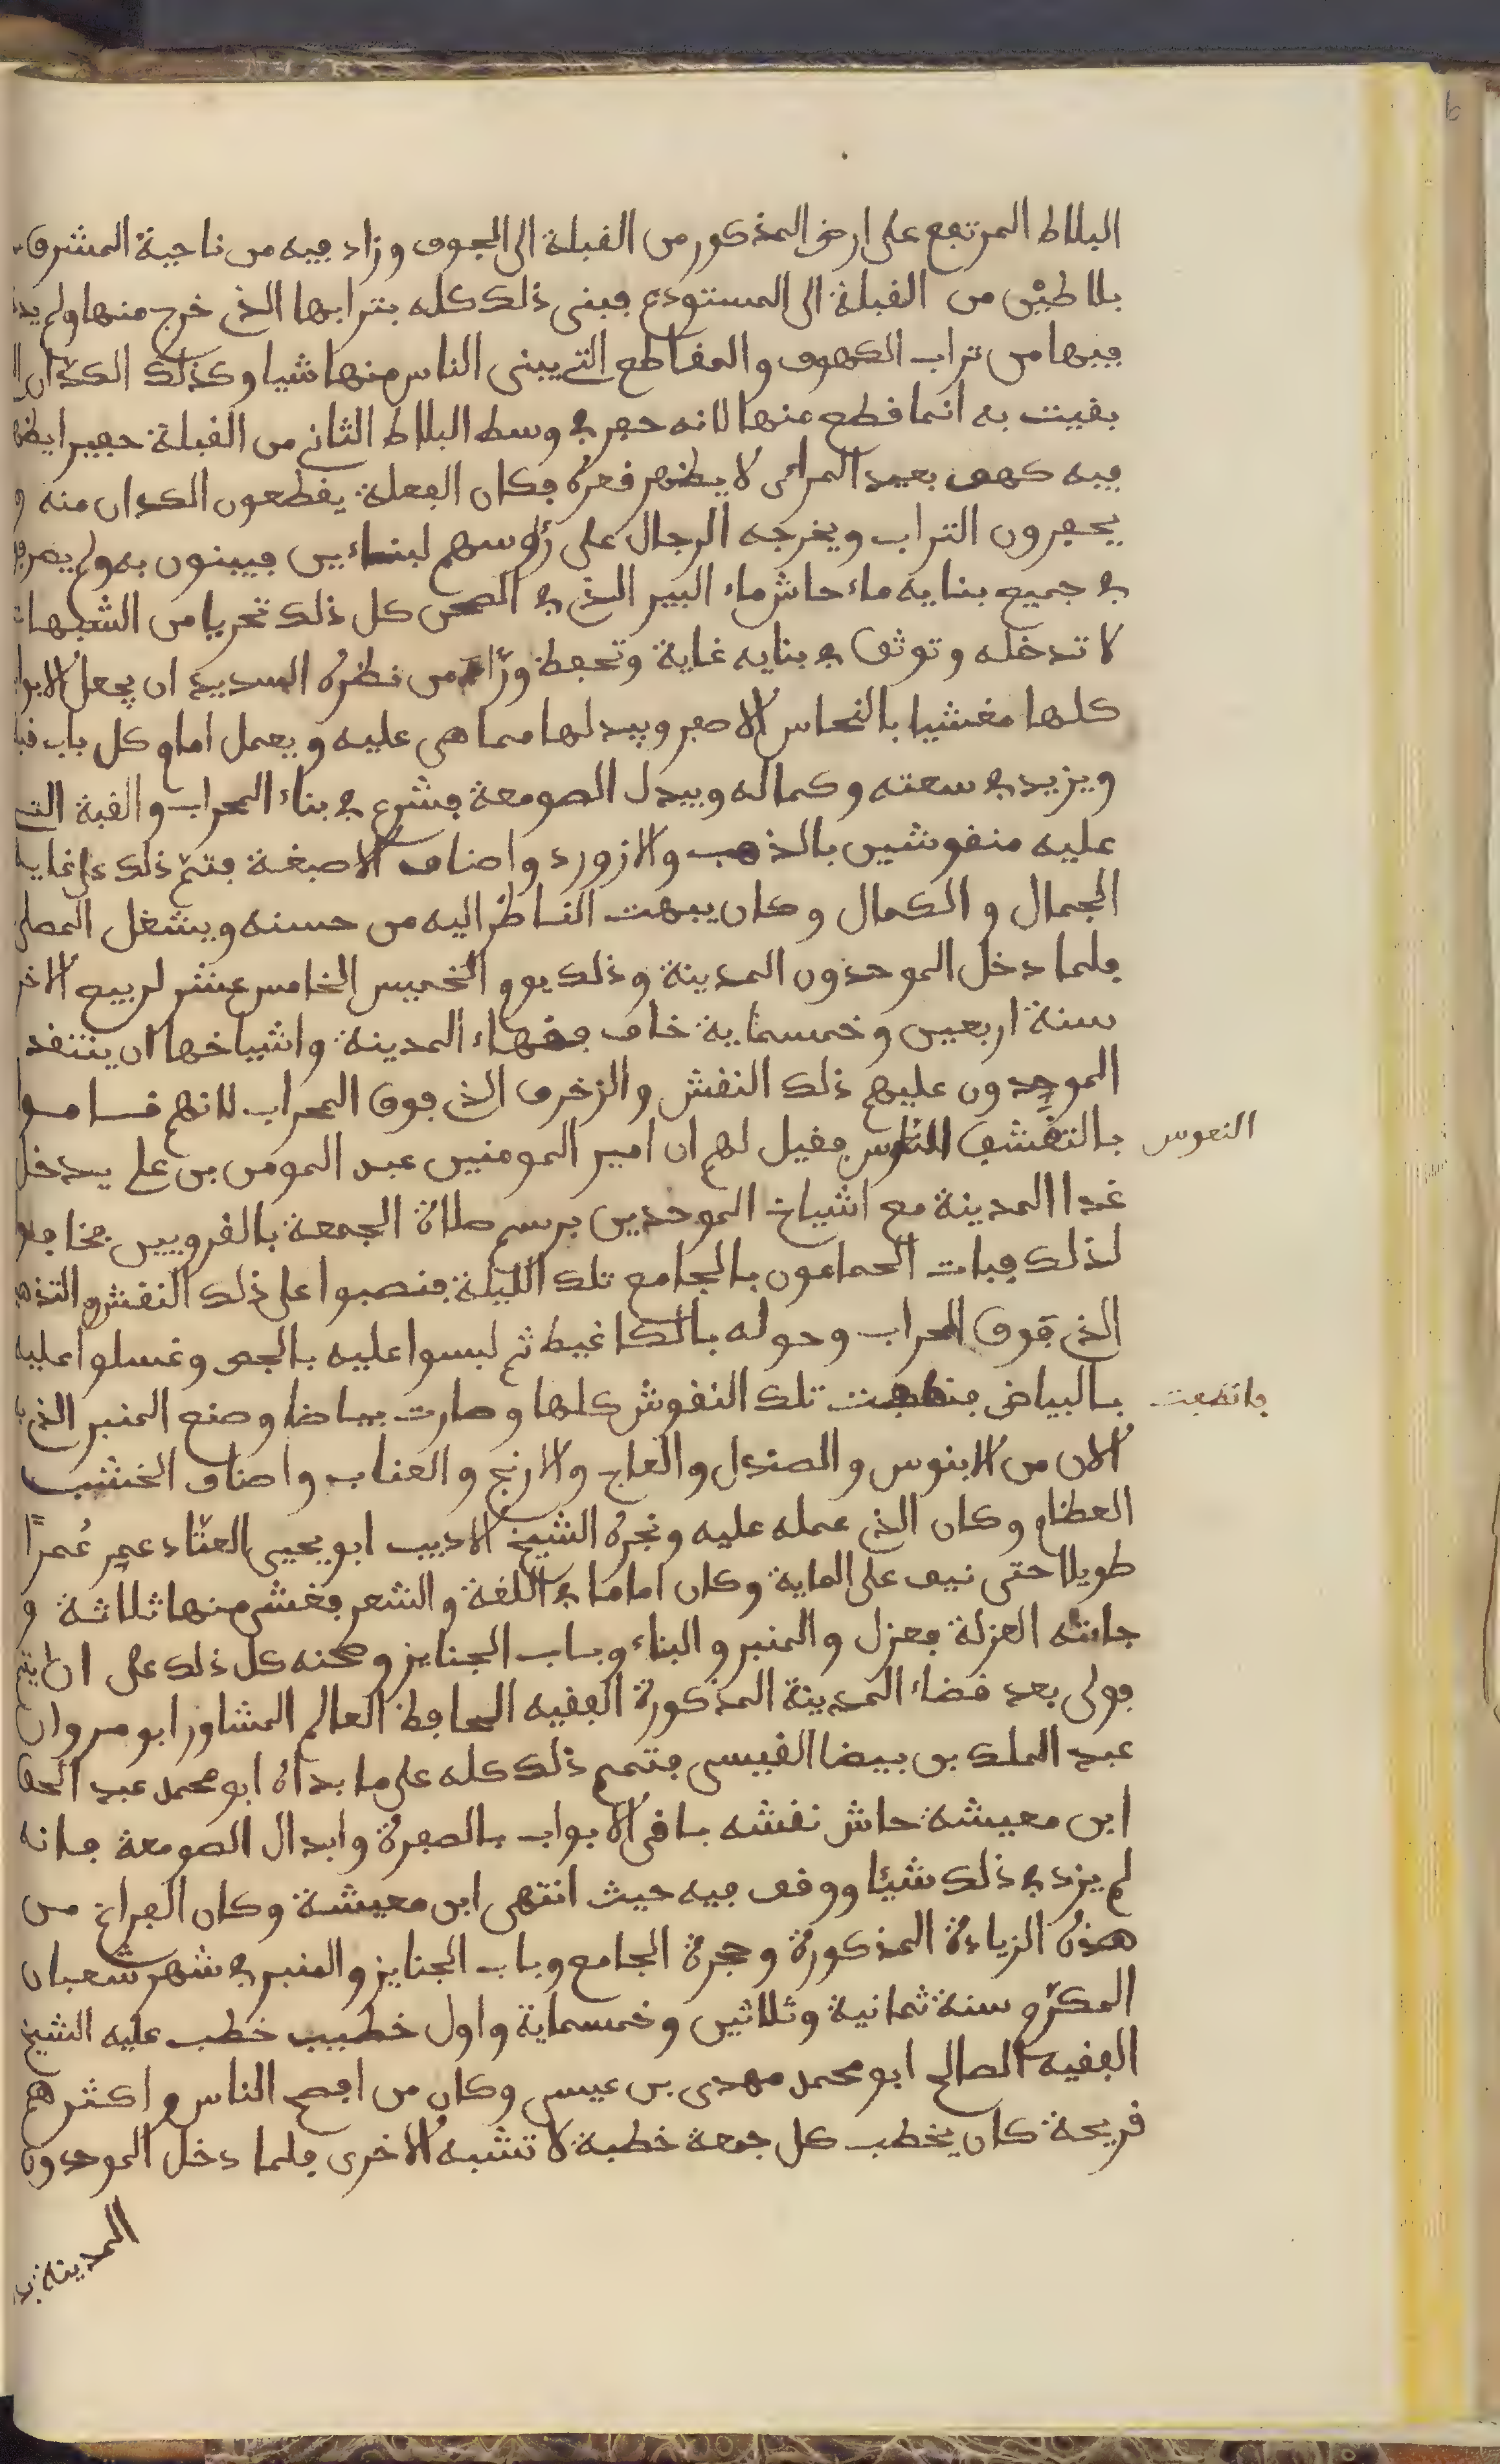 البلاط المرتفع على ارض المذكور من القبلة الى الجوف وزاد فيه من ناحية المشرق
بلاطين من القبلة الى المستودع فبنى ذلك كله بترابها الذي خرج منها ولم
فيها من تراب الكهوف والمقاطع التي يبنى الناس منها شيا وكذلك الكدّان
بقيت به انما قطع منها لانه حفر في وسط البلاط الثاني من القبلة حفيرا
فيه كهف بعيد المرامى لا يظهر قعره فكان الفعلة يقطعون الكدان منه و
يحفرون التراب ويخرجه الرجال على رؤسهم لبنائين فيبنون به ولم
في جميع بنايه ماء حاش ماء البير الذي في الصحن كل ذلك تحريا من الشبهات
لا تدخله وتوثق في بنايه غاية وتحفظ ورّاء من نظره السديد ان يجعل
كلها مغشيا بالنحاس الاصفر ويبدلها مما هى عليه ويعمل امام كل باب
ويزيد في سعته وكماله ويبدل الصومعة فشرع في بناء المحراب والقبة التي
عليه منقوشين بالذهب والازورد واصناف الاصبغة فتمّ ذلك على غاية
الجمال والكمال وكان يبهت الناظر اليه من حسنه ويشغل المصلى
فلما دخل الموحدون المدينة وذلك يوم الخميس الخامس عشر لربيع الاخر
سنة اربعين وخمسماية خاف فقهاء المدينة واشياخها ان ينتقد
الموحدون عليهم ذلك النقش والزخرف الذي فوق المحراب لانهم قاموا
بالتقشف الناموس فقيل لهم ان امير المومنين عبد المومن بن على يدخل
النعوس
غدا المدينة مع اشياخ الموحدين برسم صلاة الجمعة بالقرويين فخافوا
لذلك فبات الحمامون بالجامع تلك الليلة فنصبوا على ذلك النقش و
الذي فوق المحراب وحوله بالكاغيط ثم لبسوا عليه بالجص وغسلوا عليه
بالبياض فنطفت تلك النقوش كلها وصارت بياضا وصنع المنبر الذي
فانطفت
الان من الابنوس والصندل والعاج والارنج والعناب واصناف الخشب
العظام وكان الذي عمله عليه ونجره الشيخ الاديب ابو يحيى العتّاد عمر عُمراً
طويلا حتى نيف على الماية وكان اماما في اللغة والشعر فغشى منها ثلاثة و
جاءته العزلة فعزل والمنبر والبناء وباب الجنايز وصحنه كل ذلك على ان يتم
فولى بعد قضاء المدينة المذكورة الفقيه الحافظ العالم المشاور ابو مروان
عبد الملك بن بيضا القيسى فتمم ذلك كله على ما بداه ابو محمد عبد الحق
ابن معيشة حاش نقشه باقى الابواب بالصفرة وابدال الصومعة فانه
لم يزد في ذلك شيئا ووقف فيه حيث انتهى ابن معيشة وكان الفراغ من
هذه الزيادة المذكورة وحجرة الجامع وباب الجنايز والمنبر في شهر شعبان
المكرّم سنة ثمانية وثلاثين وخمسماية واول خطيب خطب عليه الشيخ
الفقيه الصالح ابو محمد مهدى بن عيسى وكان من افصح الناس واكثرهم
قريحة كان يخطب كل جمعة خطبة لا تشبه الاخرى فلما دخل الموحدون
المدينة